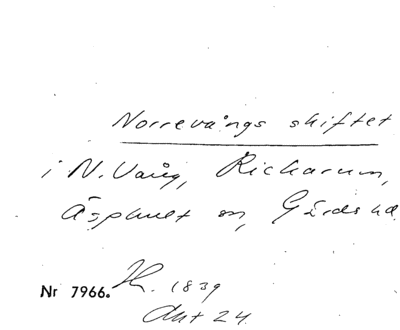 Norrevångs skiftet
i N. Vång, Rickarum,
Äsphult sn, Gärds hd
Nr 7966. Jk. 1839
Akt 24.